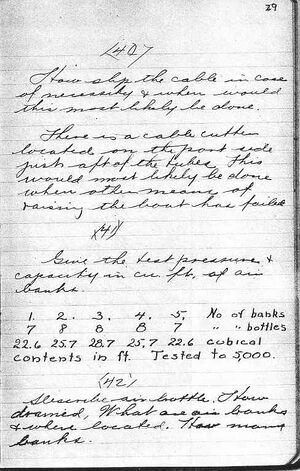 29
(40)
How slip the cable in case
of necessity & when would
this most likely be done.
There is a cable cutter
located on the port side
just aft of the tubes. This
would most likely be done
when other means of
raising the boat has failed
(41)
Give the test pressure &
capacity in cu. ft. of air
banks.
1. 2. 3. 4. 5. No of banks
7 8 8 8 7 " " bottles
22.6 25.7 28.7 25.7 22.6 cubical
contents in ft. Tested to 5,000.
(42)
Describe air bottle. How
drained, What are air banks
& where located. How many
banks.